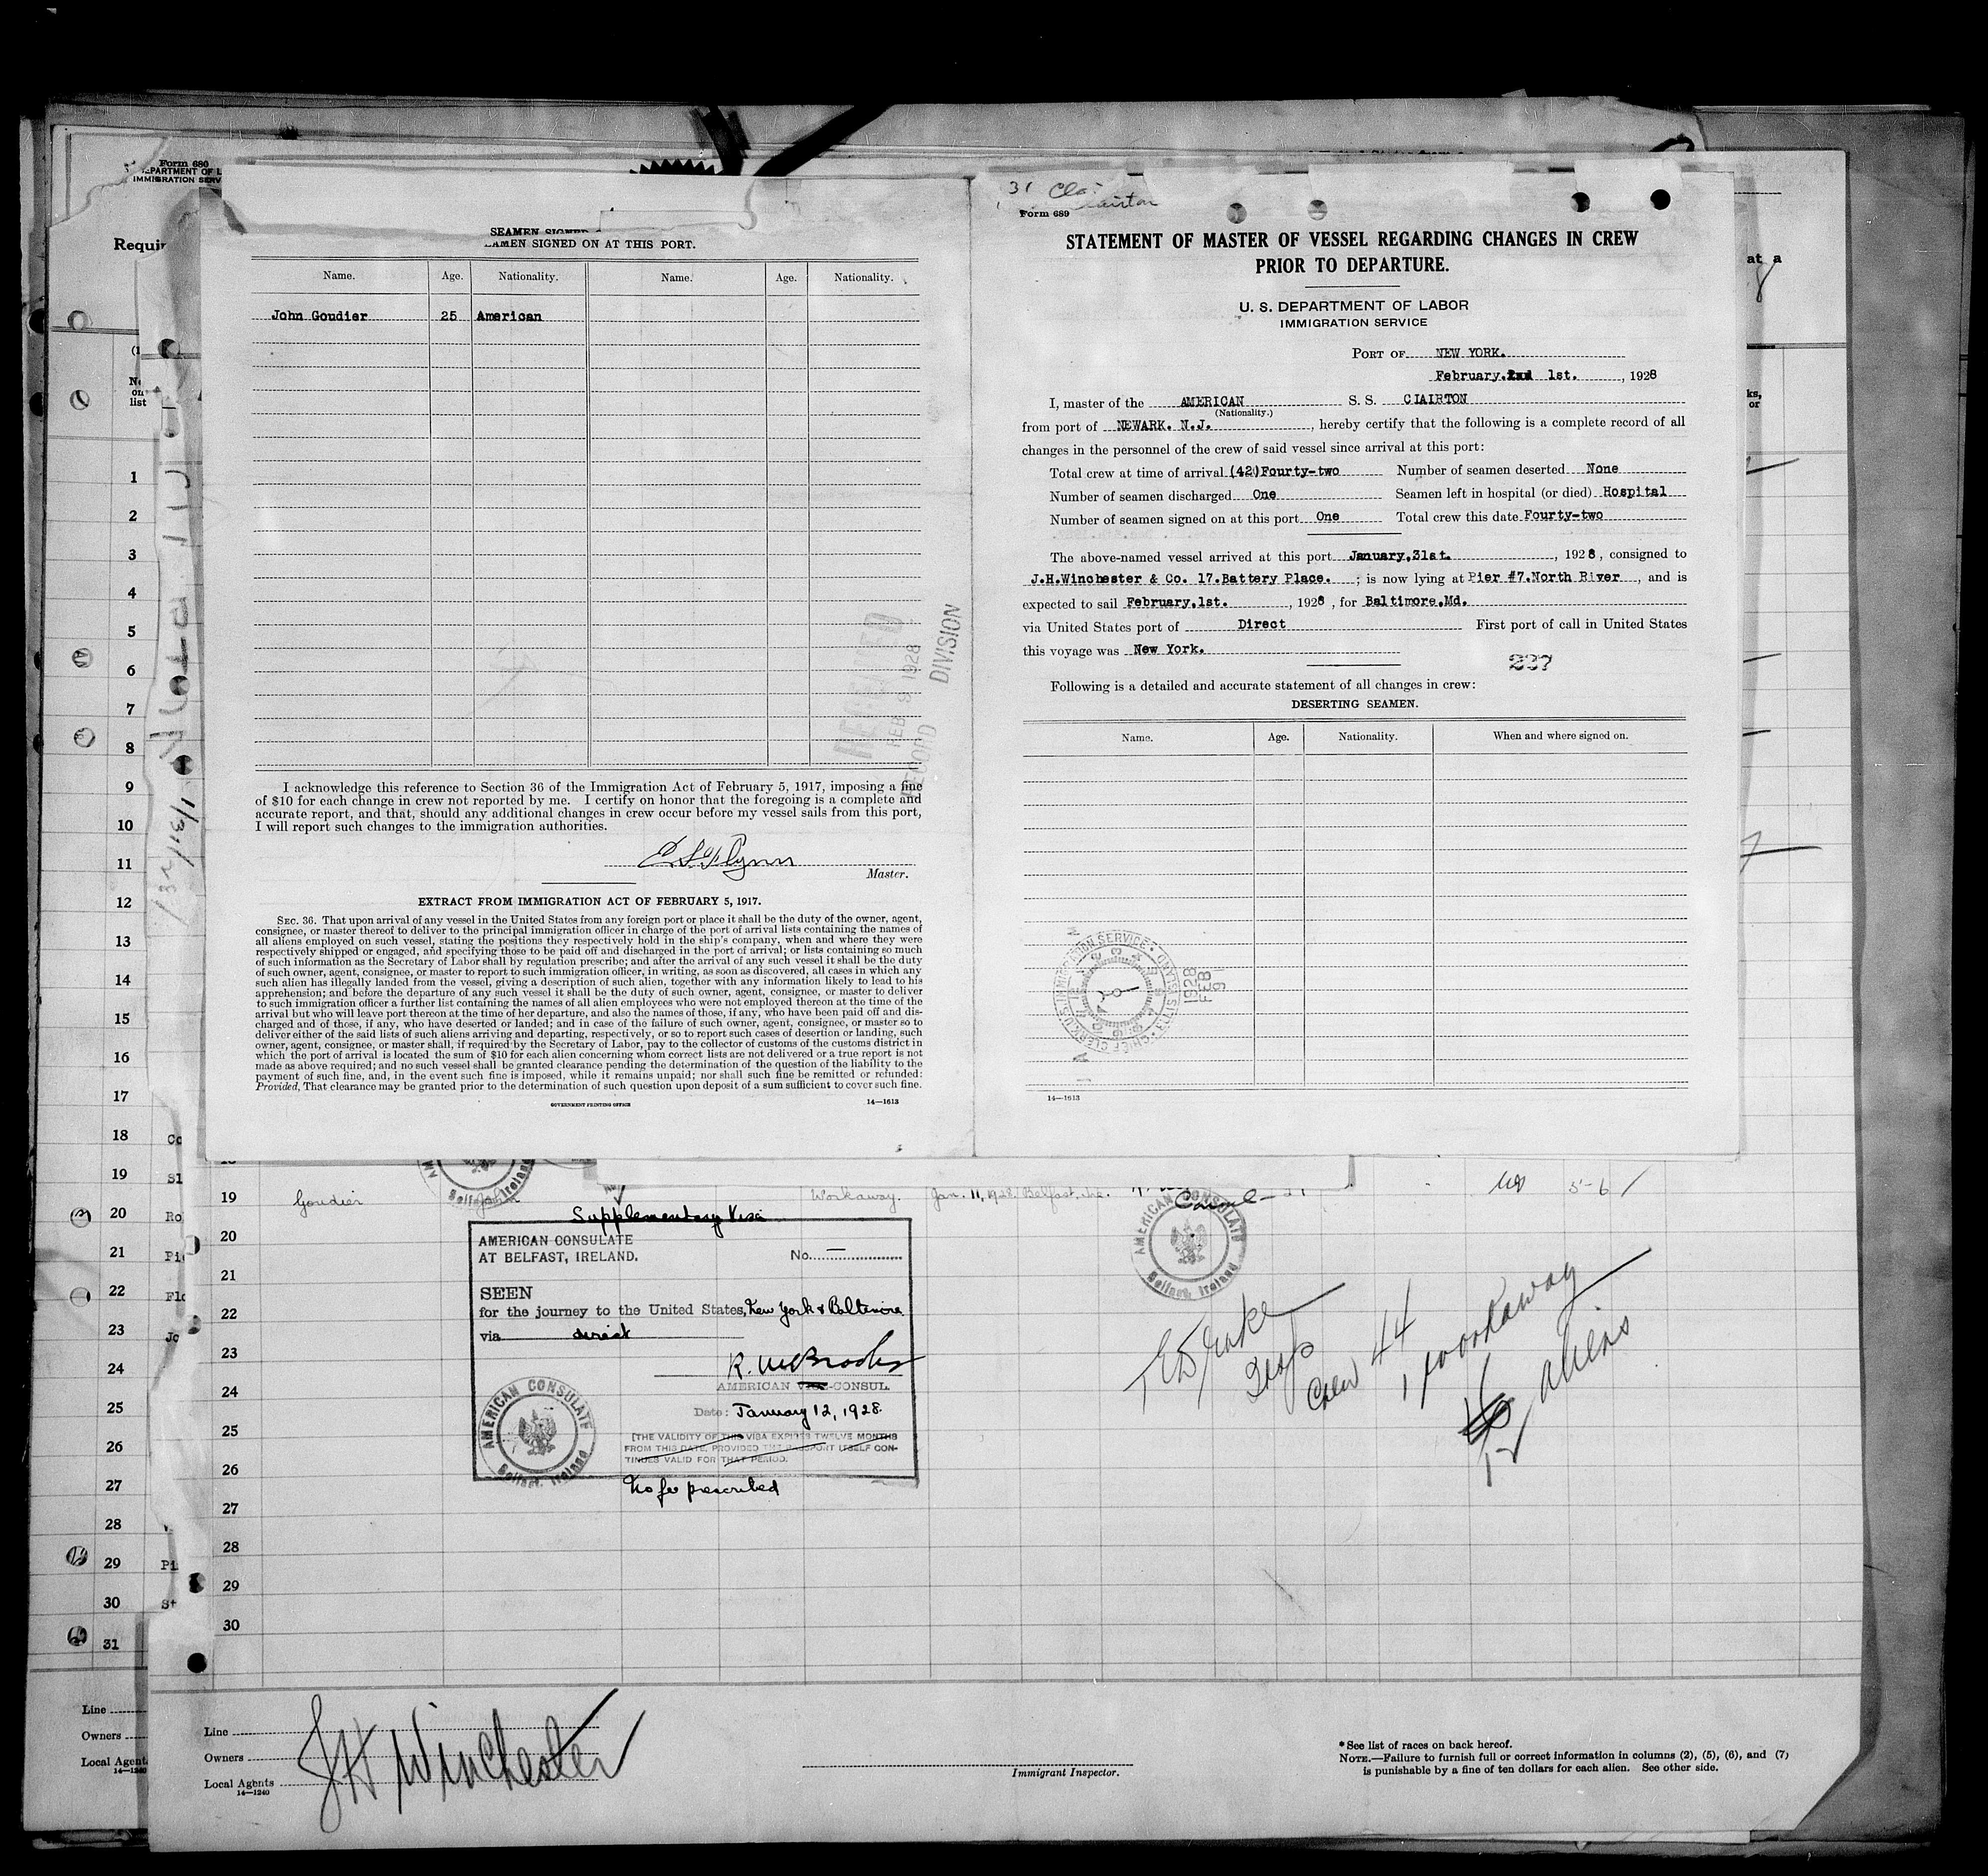 Form 680
DEPARTMENT OF L
IMMIGRATION SERV
Requir
SEAMEN SIGNED
SEAMEN SIGNED ON AT THIS PORT.
Name. Age. Nationality. Name. Age. Nationality.
John Goudier 25 American
REVIEWED
FEB 9 1928
RECORD DIVISION
I acknowledge this reference to Section 36 of the Immigration Act of February 5, 1917, imposing a fine
of $10 for each change in crew not reported by me. I certify on honor that the foregoing is a complete and
accurate report, and that, should any additional changes in crew occur before my vessel sails from this port,
I will report such changes to the immigration authorities.
Master.
EXTRACT FROM IMMIGRATION ACT OF FEBRUARY 5, 1917.
SEC. 36. That upon arrival of any vessel in the United States from any foreign port or place it shall be the duty of the owner, agent,
consignee, or master thereof to deliver to the principal immigration officer in charge of the port of arrival lists containing the names of
all aliens employed on such vessel, stating the positions they respectively hold in the ship's company, when and where they were
respectively shipped or engaged, and specifying those to be paid off and discharged in the port of arrival; or lists containing so much
of such information as the Secretary of Labor shall by regulation prescribe; and after the arrival of any such vessel it shall be the duty
of such owner, agent, consignee, or master to report to such immigration officer, in writing, as soon as discovered, all cases in which any
such alien has illegally landed from the vessel, giving a description of such alien, together with any information likely to lead to his
apprehension; and before the departure of any such vessel it shall be the duty of such owner, agent, consignee, or master to deliver
to such immigration officer a further list containing the names of all alien employees who were not employed thereon at the time of the
arrival but who will leave port thereon at the time of her departure, and also the names of those, if any, who have been paid off and dis-
charged and of those, if any, who have deserted or landed; and in case of the failure of such owner, agent, consignee, or master so to
deliver either of the said lists of such aliens arriving and departing, respectively, or so to report such cases of desertion or landing, such
owner, agent, consignee, or master shall, if required by the Secretary of Labor, pay to the collector of customs of the customs district in
which the port of arrival is located the sum of $10 for each alien concerning whom correct lists are not delivered or a true report is not
made as above required; and no such vessel shall be granted clearance pending the determination of the question of the liability to the
payment of such fine, and, in the event such fine is imposed, while it remains unpaid; nor shall such fine be remitted or refunded:
Provided, That clearance may be granted prior to the determination of such question upon deposit of a sum sufficient to cover such fine.
GOVERNMENT PRINTING OFFICE
14—1613
31
Form 689
STATEMENT OF MASTER OF VESSEL REGARDING CHANGES IN CREW
PRIOR TO DEPARTURE.
U. S. DEPARTMENT OF LABOR
IMMIGRATION SERVICE
PORT OF NEW YORK.
February.2nd 1st. , 1928
I, master of the AMERICAN S. S. CLAIRTON
(Nationality.)
from port of NEWARK. N.J. , hereby certify that the following is a complete record of all
changes in the personnel of the crew of said vessel since arrival at this port:
Total crew at time of arrival (42)Fourty-two Number of seamen deserted None
Number of seamen discharged One Seamen left in hospital (or died) Hospital
Number of seamen signed on at this port One Total crew this date Fourty-two
The above-named vessel arrived at this port January.31st. , 1928, consigned to
J.H.Winchester & Co. 17.Battery Place. ; is now lying at Pier #7.North River , and is
expected to sail February.1st. , 1928 , for Baltimore.Md.
via United States port of Direct First port of call in United States
this voyage was New York.
237
Following is a detailed and accurate statement of all changes in crew:
DESERTING SEAMEN.
Name. Age. Nationality. When and where signed on.
IMMIGRATION SERVICE
1928 FEB 9
14—1613
1
2
3
4
5
6
7
8
9
10
11
12
13
14
15
16
17
18
19
20
21
22
23
24
25
26
27
28
29
30
31
19 Goudier John Workaway. Jan. 11, 1928. Belfast, Ire. 5-6
20
21
22
23
24
25
26
27
28
29
30
Supplementary Visa
AMERICAN CONSULATE
AT BELFAST, IRELAND. No. —
SEEN
for the journey to the United States, New York & Baltimore
via direct
AMERICAN VICE-CONSUL.
Date: January 12, 1928.
(THE VALIDITY OF THIS VISA EXPIRES TWELVE MONTHS
FROM THIS DATE, PROVIDED THE PASSPORT ITSELF CON-
TINUES VALID FOR THAT PERIOD.
No fee prescribed
AMERICAN CONSULATE
Belfast, Ireland
AMERICAN CONSULATE
Belfast, Ireland
Crew 44
1 workaway
aliens
Line
Owners
Local Agent
14—1240
Line
Owners
Local Agents
14—1240
JH Winchester
Immigrant Inspector.
*See list of races on back hereof.
NOTE.—Failure to furnish full or correct information in columns (2), (5), (6), and (7)
is punishable by a fine of ten dollars for each alien. See other side.